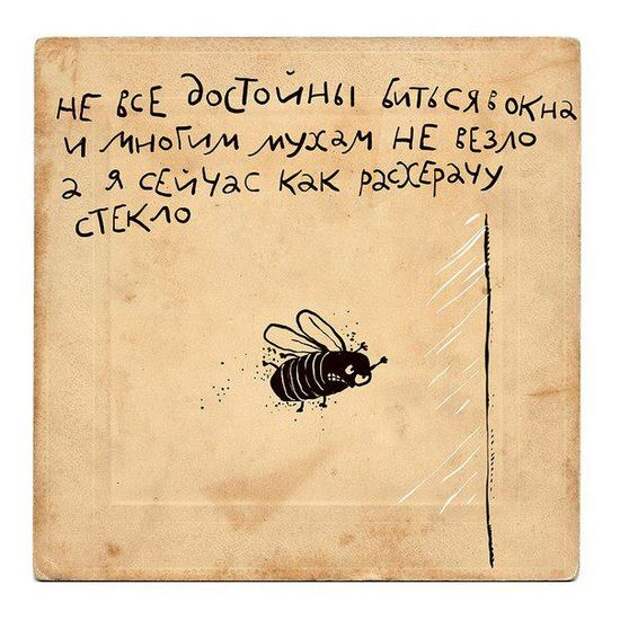 не все достойны биться в окна
и многим мухам не везло
а я сейчас как расхерачу
стекло